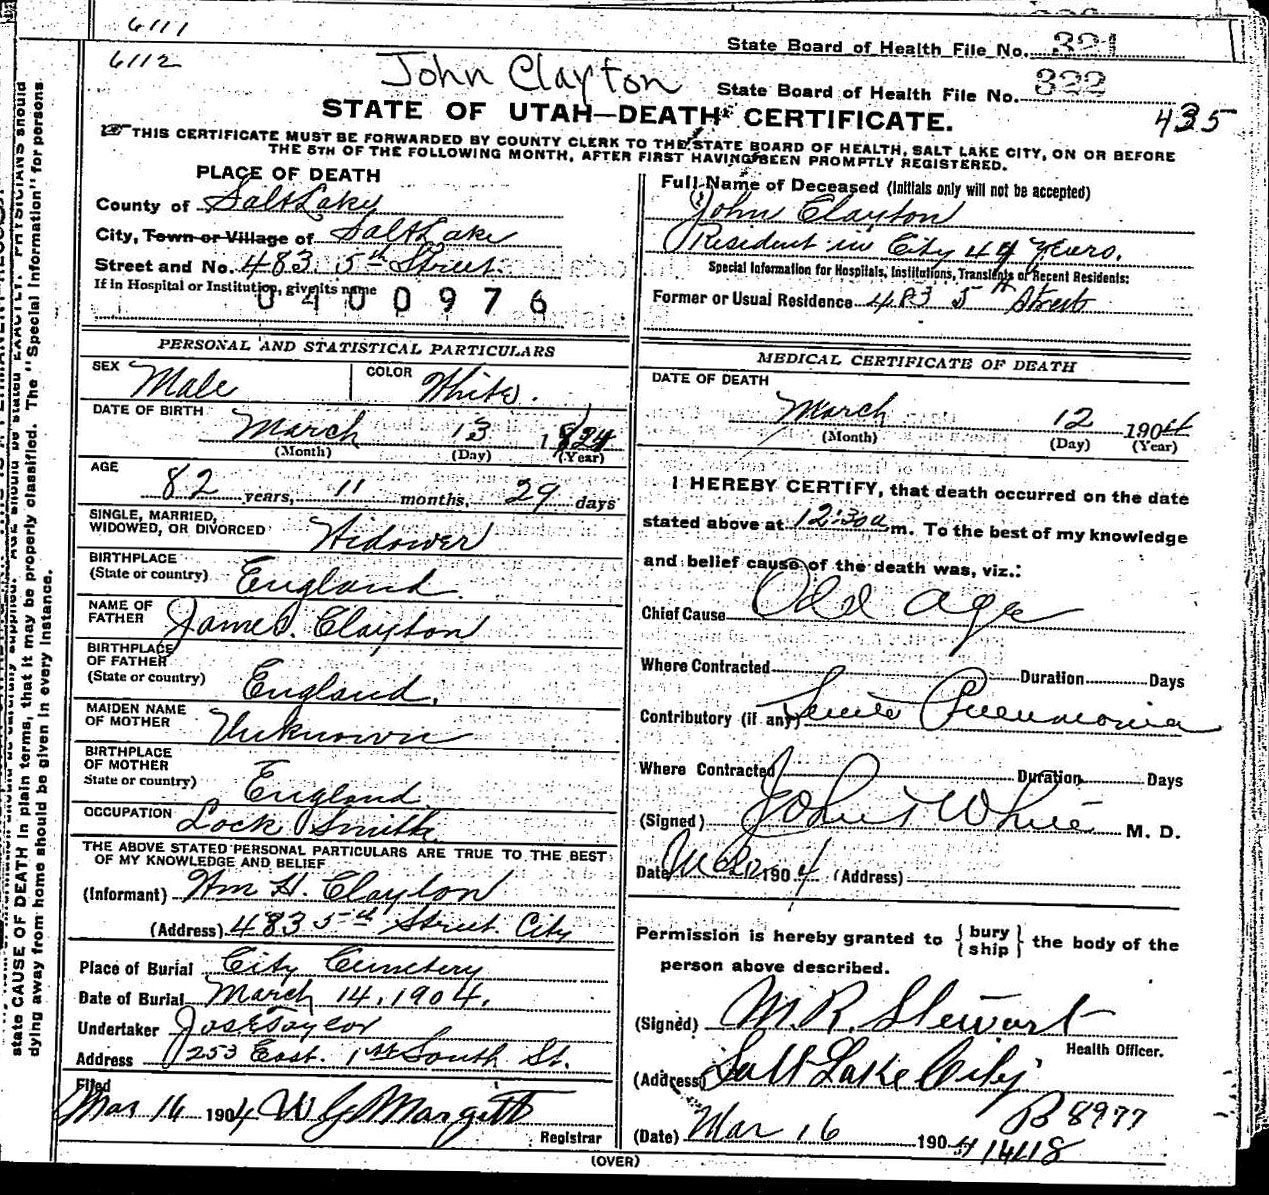 6111
State Board of Health File No. 321
6112
John Clayton State Board of Health File No. 322
STATE OF UTAH—DEATH CERTIFICATE. 435
THIS CERTIFICATE MUST BE FORWARDED BY COUNTY CLERK TO THE STATE BOARD OF HEALTH, SALT LAKE CITY, ON OR BEFORE
THE 5TH OF THE FOLLOWING MONTH, AFTER FIRST HAVING BEEN PROMPTLY REGISTERED.
PLACE OF DEATH
County of Salt Lake
City, Town or Village of Salt Lake
Street and No. 483 5th Street.
If in Hospital or Institution, give its name
0400976
Full Name of Deceased (Initials only will not be accepted)
John Clayton
Resident in City 44 Years.
Special Information for Hospitals, Institutions, Transients or Recent Residents:
Former or Usual Residence 483 5th Street
PERSONAL AND STATISTICAL PARTICULARS
SEX Male COLOR White.
DATE OF BIRTH
March 13 1824
(Month) (Day) (Year)
AGE
82 years, 11 months, 29 days
SINGLE, MARRIED,
WIDOWED, OR DIVORCED Widower
BIRTHPLACE
(State or country) England.
NAME OF
FATHER James Clayton
BIRTHPLACE
OF FATHER
(State or country) England.
MAIDEN NAME
OF MOTHER Unknown
BIRTHPLACE
OF MOTHER
State or country) England
OCCUPATION Lock Smith
THE ABOVE STATED PERSONAL PARTICULARS ARE TRUE TO THE BEST
OF MY KNOWLEDGE AND BELIEF
(Informant) Wm H. Clayton
(Address) 483 5th Street City
Place of Burial City Cemetery
Date of Burial March 14, 1904.
Undertaker Jos E Taylor
Address 253 East. 1st South St.
Filed
Mar 16 1904 W G Margetts
Registrar
MEDICAL CERTIFICATE OF DEATH
DATE OF DEATH
March 12 1904
(Month) (Day) (Year)
I HEREBY CERTIFY, that death occurred on the date
stated above at 12:30 a m. To the best of my knowledge
and belief cause of the death was, viz.:
Chief Cause Old Age
Where Contracted Duration Days
Contributory (if any) Senile Pneumonia
Where Contracted Duration Days
(Signed) John White M. D.
Date 1904 (Address)
Permission is hereby granted to { bury
ship } the body of the
person above described.
(Signed) M. R. Stewart
Health Officer.
(Address) Salt Lake City
B 8977
(Date) Mar 16 1904 14118
(OVER)
state CAUSE OF DEATH in plain terms, that it may be properly classified. The "Special Information" for persons
dying away from home should be given in every instance.